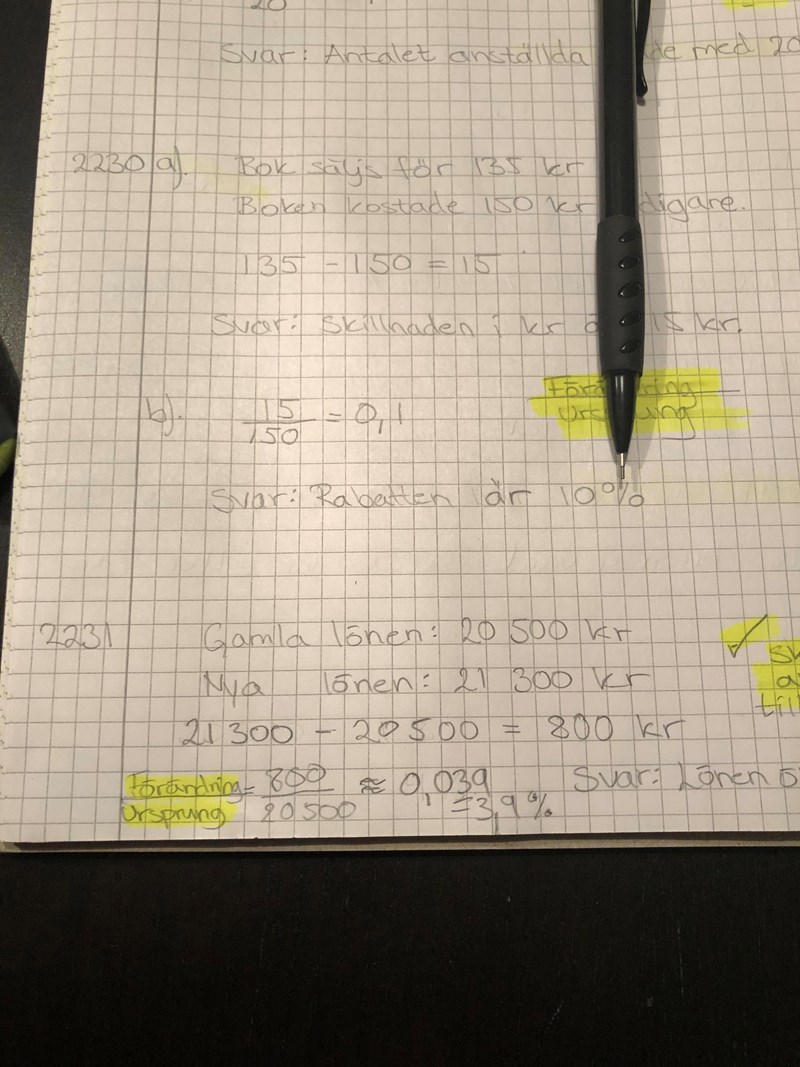 20
Svar: Antalet anställda de med 20
2230 a). Bok säljs för 135 kr
Boken kostade 150 kr digare.
135 - 150 = 15
Svar: Skillnaden i kr 15 kr.
b). 15/150 = 0,1
Förändring
Ursprung
Svar: Rabatten är 10%
2231 Gamla lönen: 20 500 kr
Nya lönen: 21 300 kr
21 300 - 20 500 = 800 kr
Förändring/Ursprung = 800/20 500 ≈ 0,039 Svar: Lönen ö
=3,9%